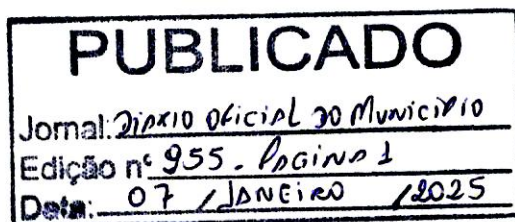 PUBLICADO
Jornal: DIARIO OFICIAL DO MUNICIPIO
Edição nº 955 - PAGINA 1
Data: 07 / JANEIRO / 2025